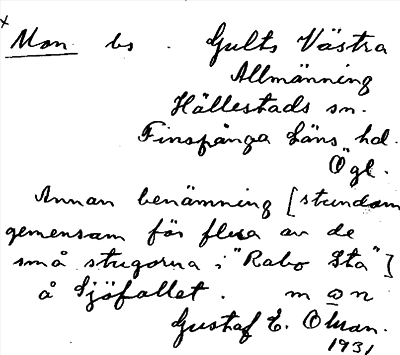 x
Mon bs . Gults Västra
Allmänning
Hällestads sn.
Finspånga läns hd.
Ögl.
Annan benämning [stundom
gemensam för flera av de
små stugorna i "Rabo Sta"]
å Sjöfallet . m o n
Gustaf E. Olsson.
1931